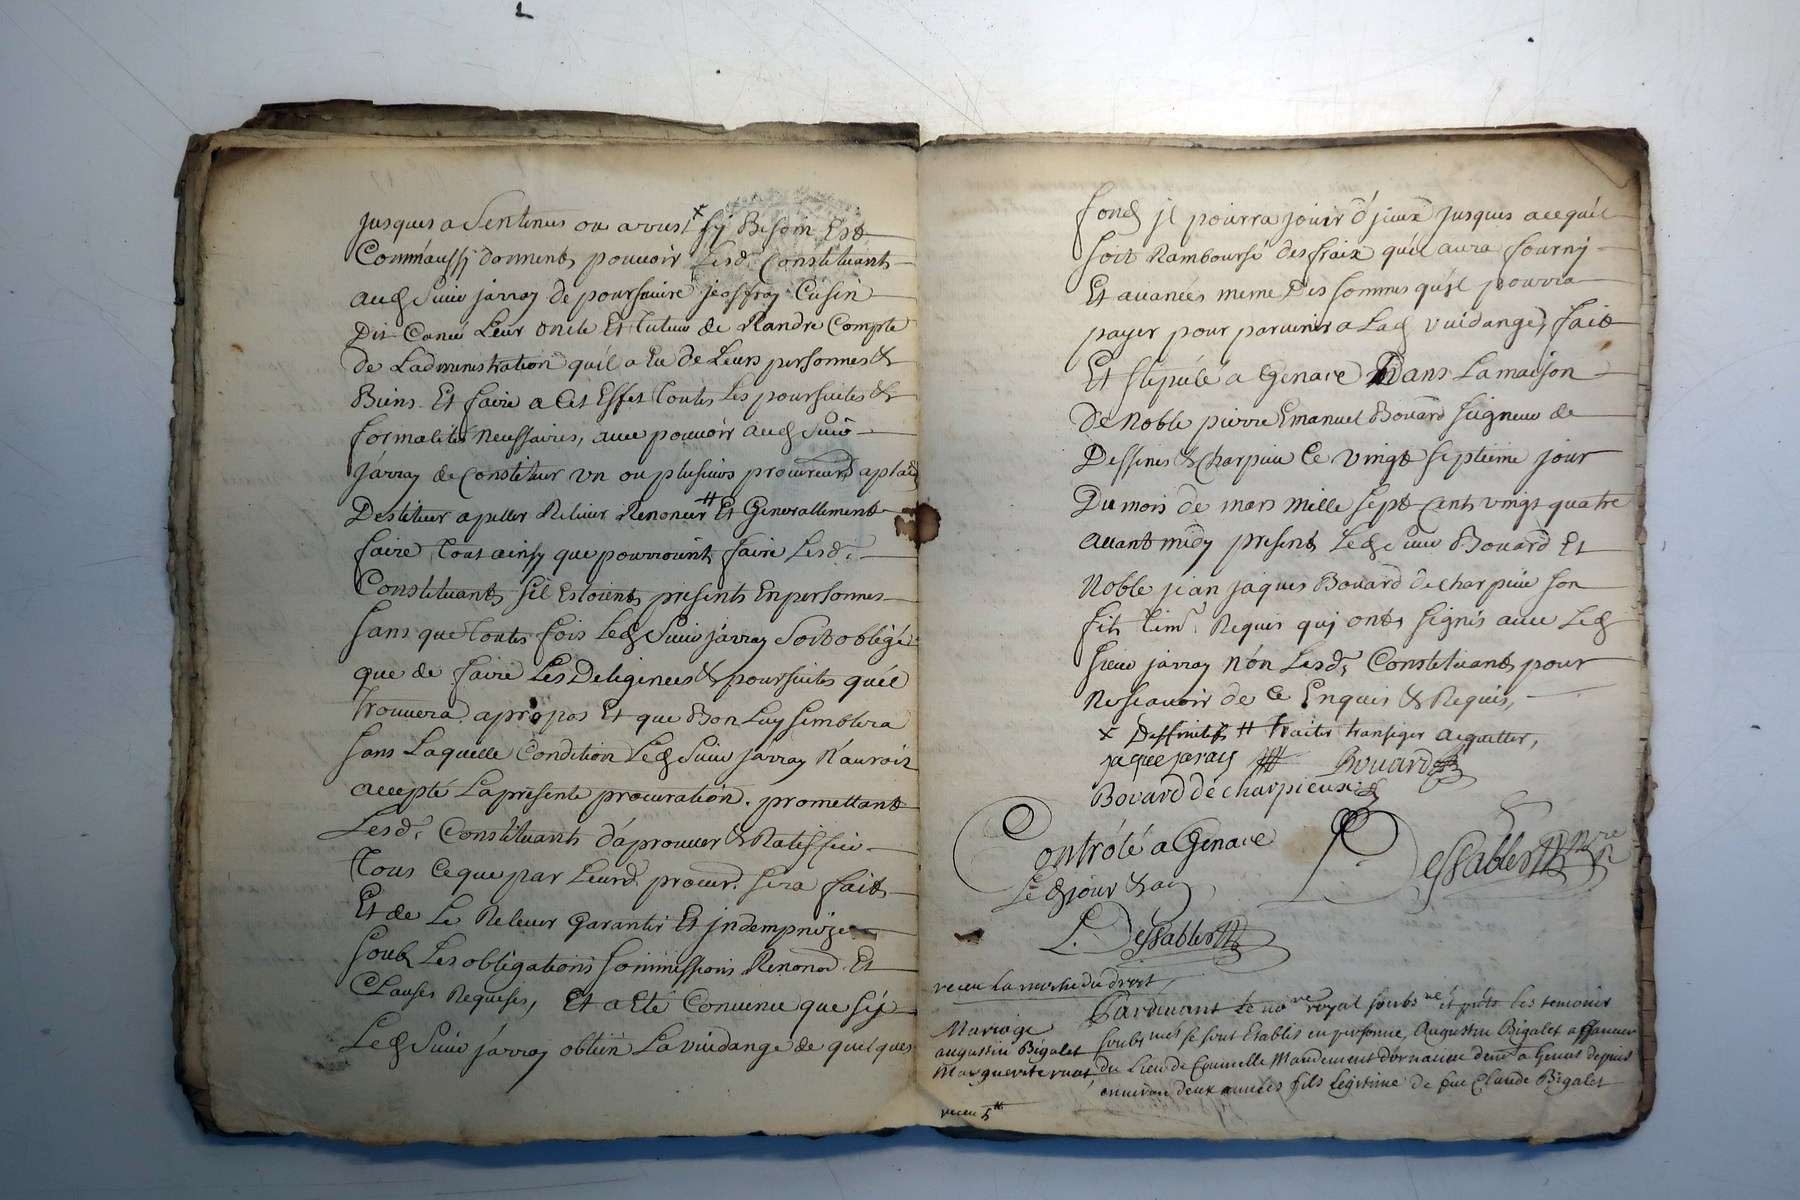 jusques a Sentences ou arrest x sy Besoin Est
Comm'aussj donnents pouvoir Lesd. Constituants
aud Sieur jarray de poursuivre jeoffray Cusin
Dit Canu Leur oncle Et Tuteur de Randre Compte
de Ladministration quil a Eu de Leurs personnes &
Biens Et faire a Cet Effet Toutes Les poursuites &
formalités neussaires, avec pouvoir aud Sieur
jarray de Constituer un ou plusieurs procureurs a plaid
Destituer apeller Relever Renoncer # Et Generallement
faire Tout ainsy que pourroient faire Lesd.
Constituants sil Estoients presents En personnes
sans que Toutes fois Led Sieur jarray Soit obligé
que de faire Les Deligences & poursuites quil
Trouvera apropos Et que Bon Luy semblera
sans Laquelle Condition Led Sieur jarray N'auroit
accepté La presente procuration. promettant
Lesd. Constituants d'aprouver & Ratiffier
Tous Ce que par Leurd. procur. sera fait
Et de Le Relever Garantir Et jndempnizer
soub Les obligations sommissions Renond. Et
Clauses Requises, Et a Eté Convenu que sy
Led Sieur jarray obtien La vuidange de quelques
fond jl pourra jouir d'jceux jusques acequil
soit Rambourse des fraix quil aura fourny
Et avancés meme Des sommes quil pourra
payer pour parvenir a Lad vuidange, fait
Et stipulé a Genave Dans La maison
De Noble pierre Emanuel Bouard seigneur de
Dessines & charpieu Ce vingt septieme jour
Du mois de mars mille sept cent vingt quatre
avant midy presents Led Sieur Bouard Et
Noble jean jaques Bouard de charpieu son
fils Tem. Requis quj onts signés avec Led
sieur jarray n'on Lesd. Constituants pour
ne scavoir de Ce Enquis & Requis,
x Deffinitifs # traiter transiger acquitter,
jaque jaray Bouard
Bovard de charpieux
Controlé a Genave
Le d jour & an
Dessables
L. Dessables
receu La moitie du droit
Pardevant Le no.re royal soubs.né et pñts les temoins
Mariage
augustin Bigalet
Marguerite
soubs nes se sont Etablis en personne, Augustin Bigalet affaneur
du Lieu de Mandement a Genas depuis
environ deux années fils legitime de feu Claude Bigalet
receu 5 tt